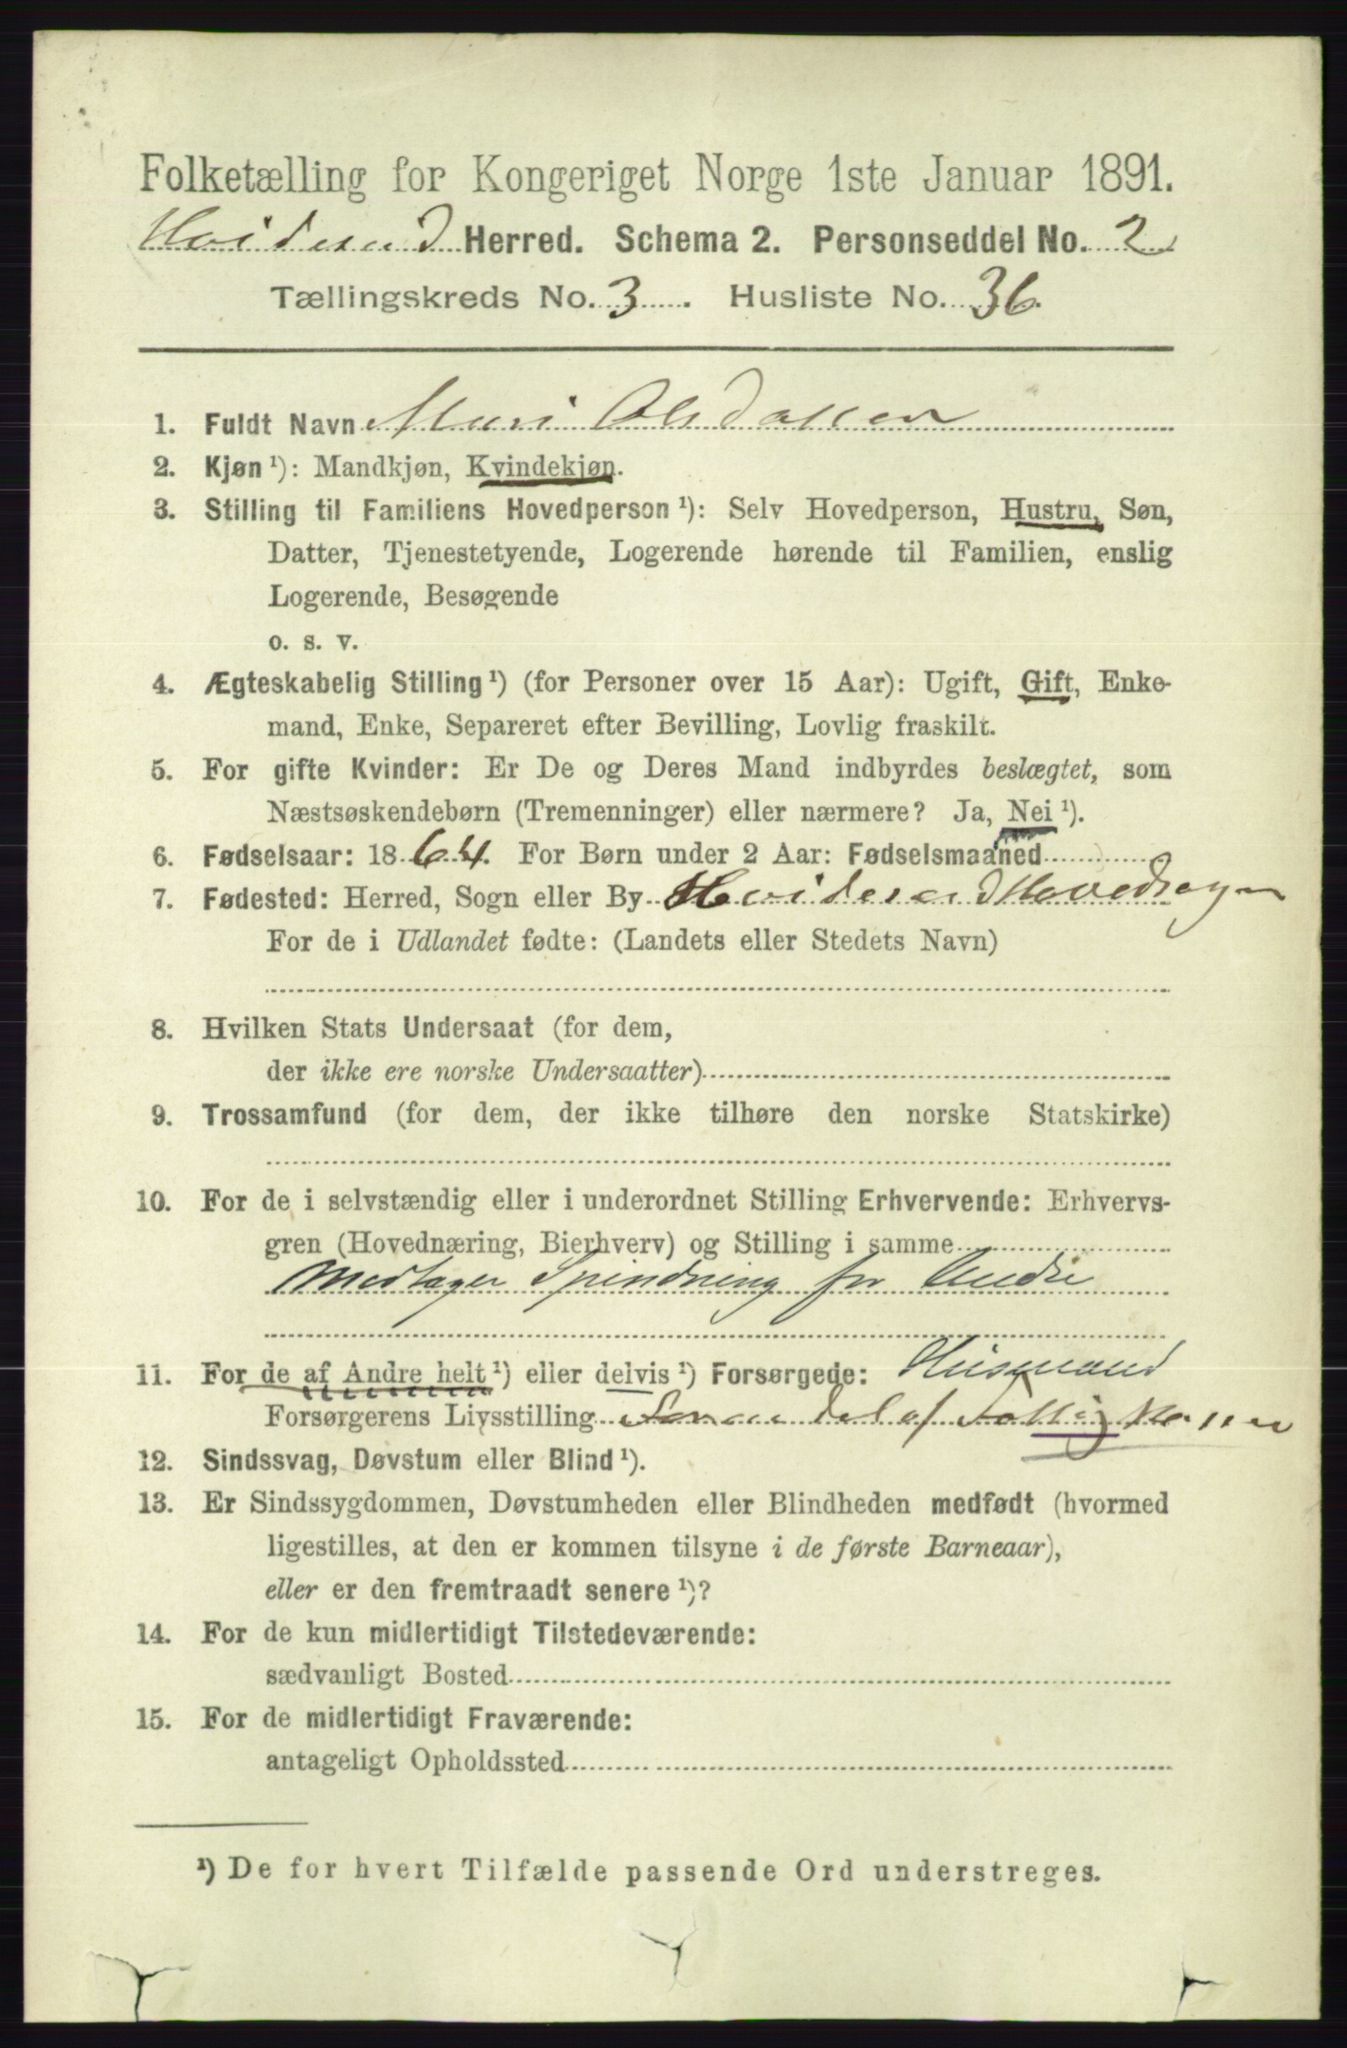 Folketælling for Kongeriget Norge 1ste Januar 1891.
Hviteseid Herred. Schema 2. Personseddel No. 2
Tællingskreds No. 3. Husliste No. 36.
1. Fuldt Navn Mari Olsdatter
2. Kjøn ¹): Mandkjøn, Kvindekjøn.
3. Stilling til Familiens Hovedperson ¹): Selv Hovedperson, Hustru, Søn,
Datter, Tjenestetyende, Logerende hørende til Familien, enslig
Logerende, Besøgende
o. s. v.
4. Ægteskabelig Stilling ¹) (for Personer over 15 Aar): Ugift, Gift, Enke-
mand, Enke, Separeret efter Bevilling, Lovlig fraskilt.
5. For gifte Kvinder: Er De og Deres Mand indbyrdes beslægtet, som
Næstsøskendebørn (Tremenninger) eller nærmere? Ja, Nei ¹).
6. Fødselsaar: 1864. For Børn under 2 Aar: Fødselsmaaned
7. Fødested: Herred, Sogn eller By Hviteseid Hovedsogn
For de i Udlandet fødte: (Landets eller Stedets Navn)
8. Hvilken Stats Undersaat (for dem,
der ikke ere norske Undersaatter)
9. Trossamfund (for dem, der ikke tilhøre den norske Statskirke)
10. For de i selvstændig eller i underordnet Stilling Erhvervende: Erhvervs-
gren (Hovednæring, Bierhverv) og Stilling i samme
Modtager Spindning for Andre
11. For de af Andre helt ¹) eller delvis ¹) Forsørgede: Husmand
Forsørgerens Livsstilling del af
12. Sindssvag, Døvstum eller Blind ¹).
13. Er Sindssygdommen, Døvstumheden eller Blindheden medfødt (hvormed
ligestilles, at den er kommen tilsyne i de første Barneaar),
eller er den fremtraadt senere ¹)?
14. For de kun midlertidigt Tilstedeværende:
sædvanligt Bosted
15. For de midlertidigt Fraværende:
antageligt Opholdssted
¹) De for hvert Tilfælde passende Ord understreges.